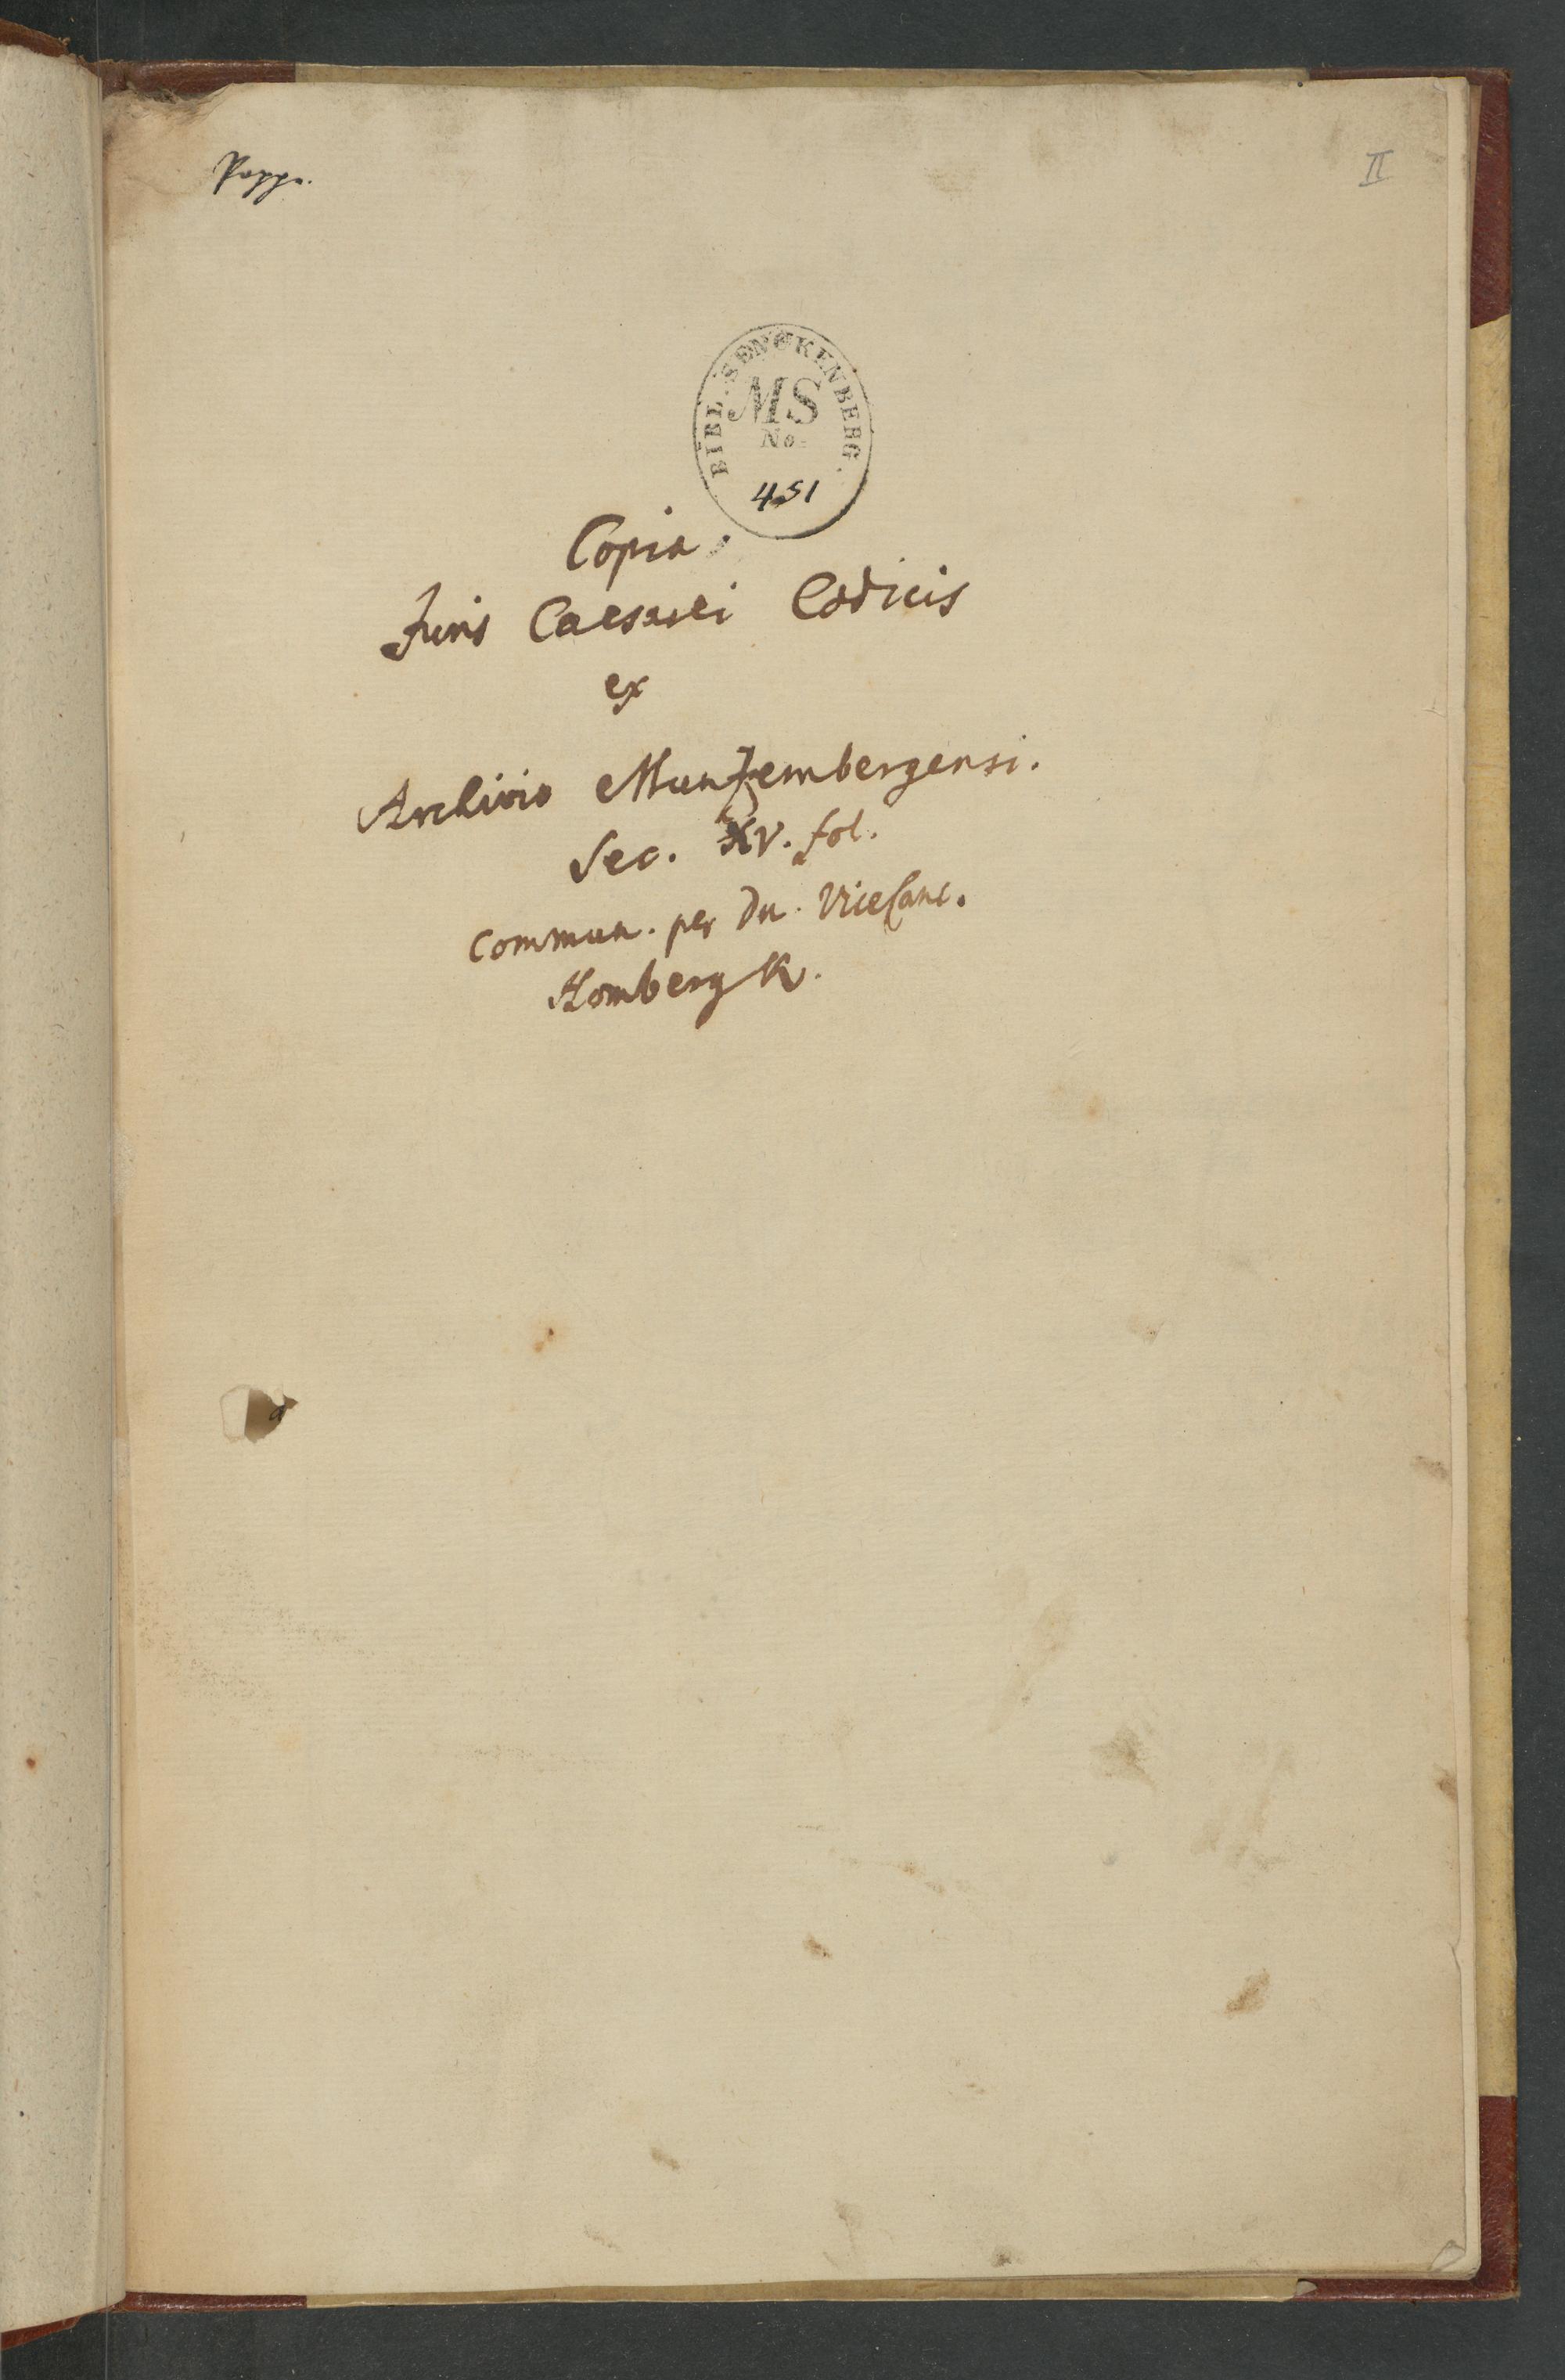 Papp.
II
BIBL. SENCKENBERG.
MS
No.
451
Copia
Juris Caesarei Codicis
ex
Archivio Munzembergensi.
Sec. XV. fol.
commun. per Dn. ViceCanc.
Hombergk.